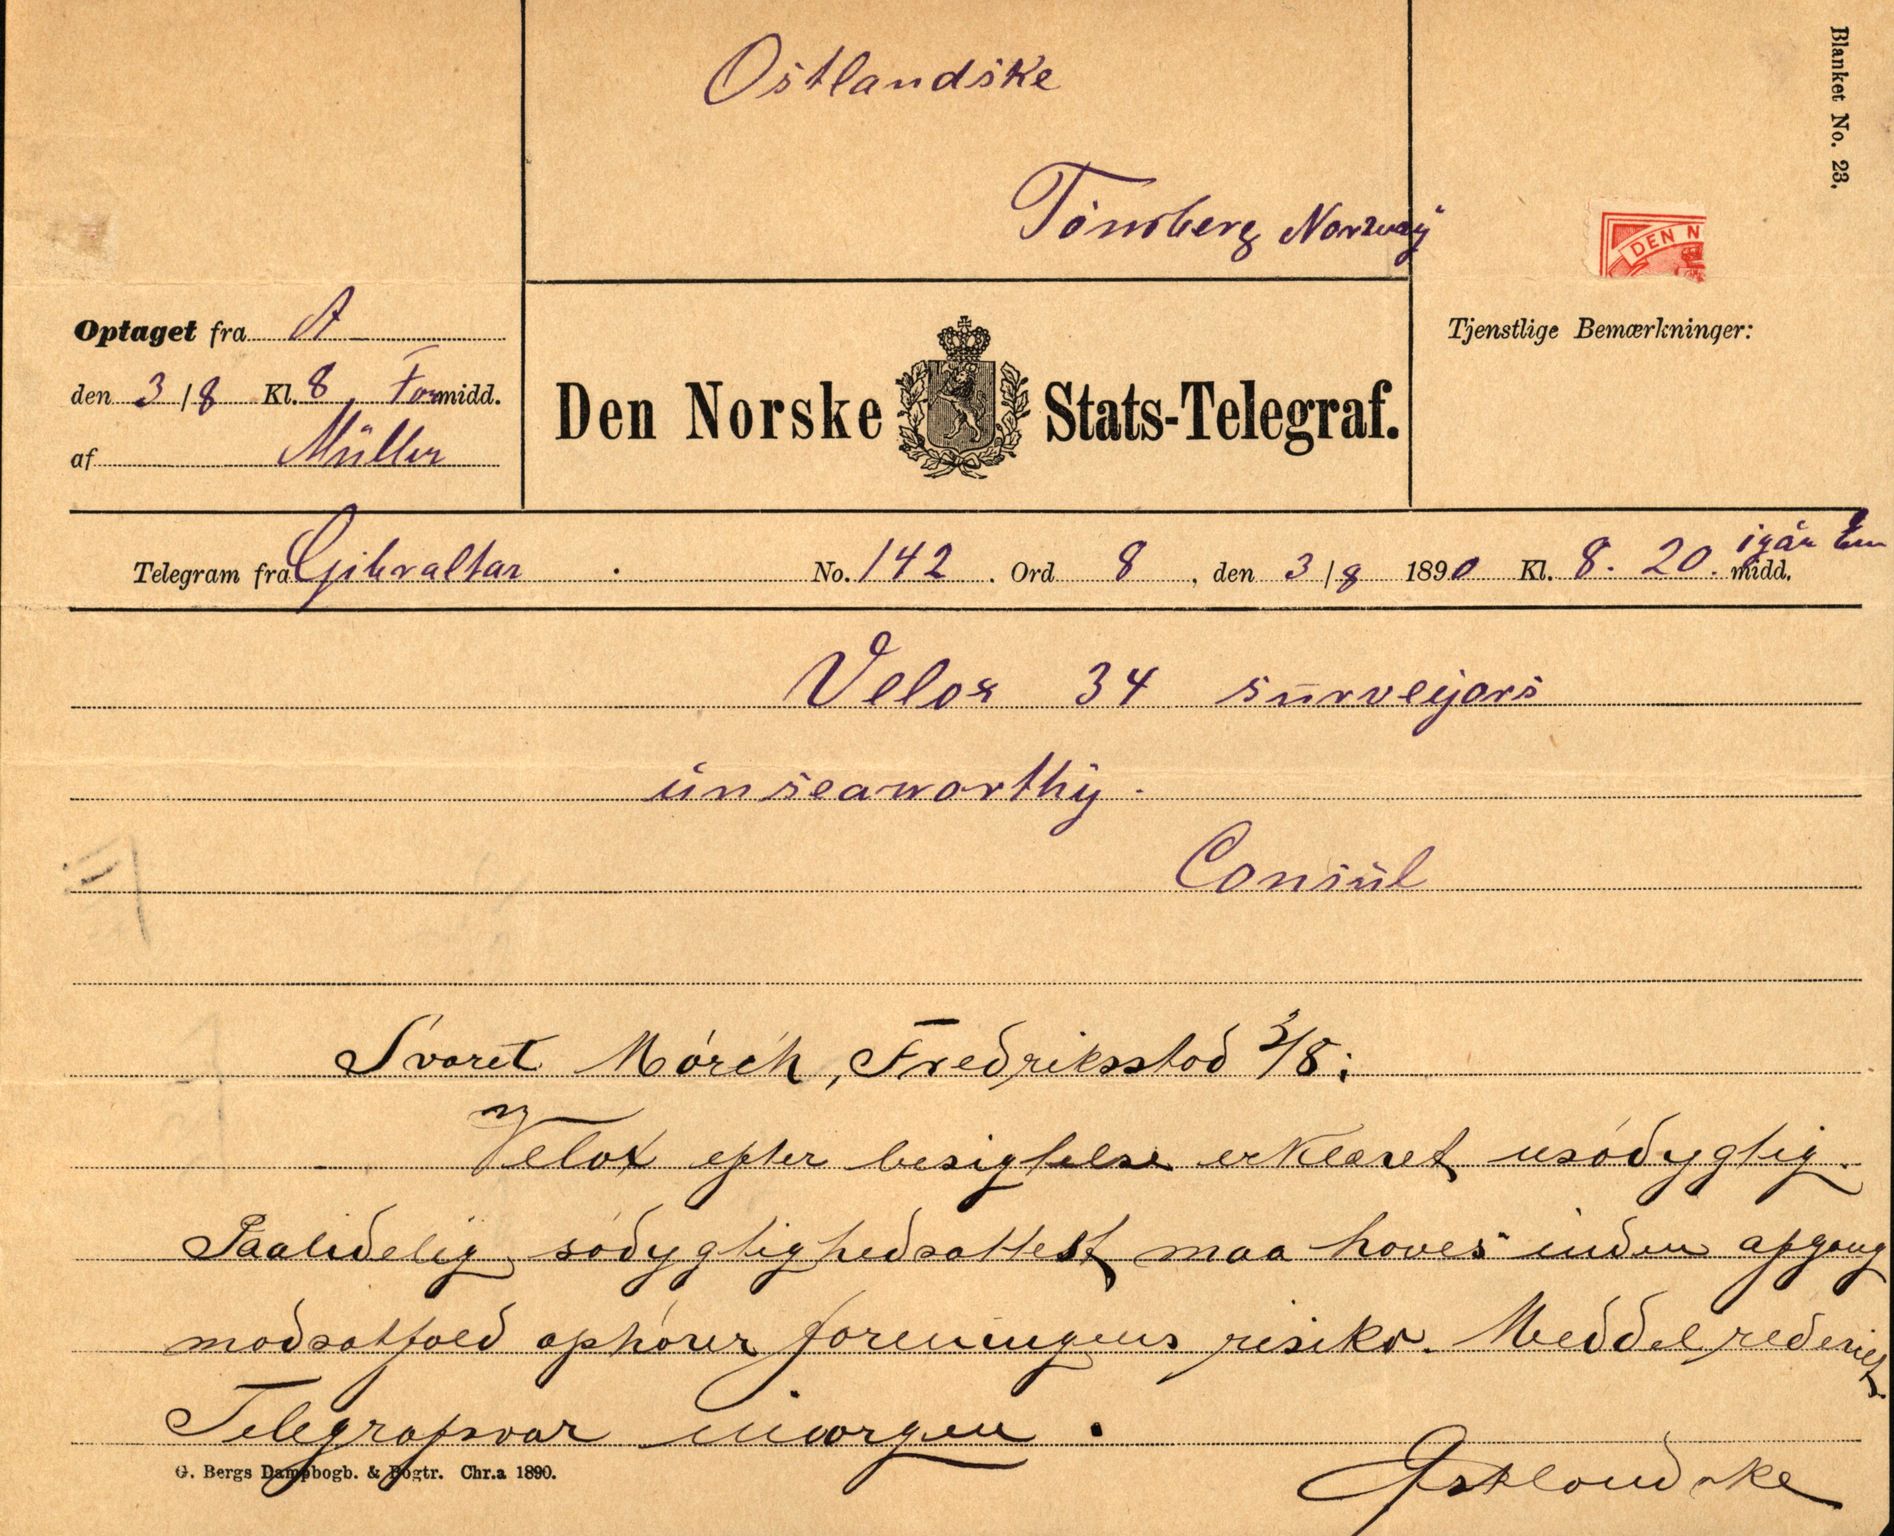 Blanket No. 23.
Ostlandske
Tönsberg Norway
DEN N
Optaget fra A
den 3/8 Kl. 8 Formidd.
af Müller
Den Norske Stats-Telegraf.
Tjenstlige Bemærkninger:
Telegram fra Gibraltar No. 142. Ord 8, den 3/8 1890 Kl. 8.20. igår Em midd.
Velox 34 surveyors
unseaworthy.
Consul
Svaret Mörch, Fredriksstad 3/8:
Velox efter besigtelse erklæret usödygtig.
Paalidelig södygtighedsattest maa haves inden afgang
modsatfald ophörer foreningens risiko. Meddel rederiet.
Telegrafsvar imorgen.
Østlandske
G. Bergs Dampbogb. & Bogtr. Chr.a 1890.